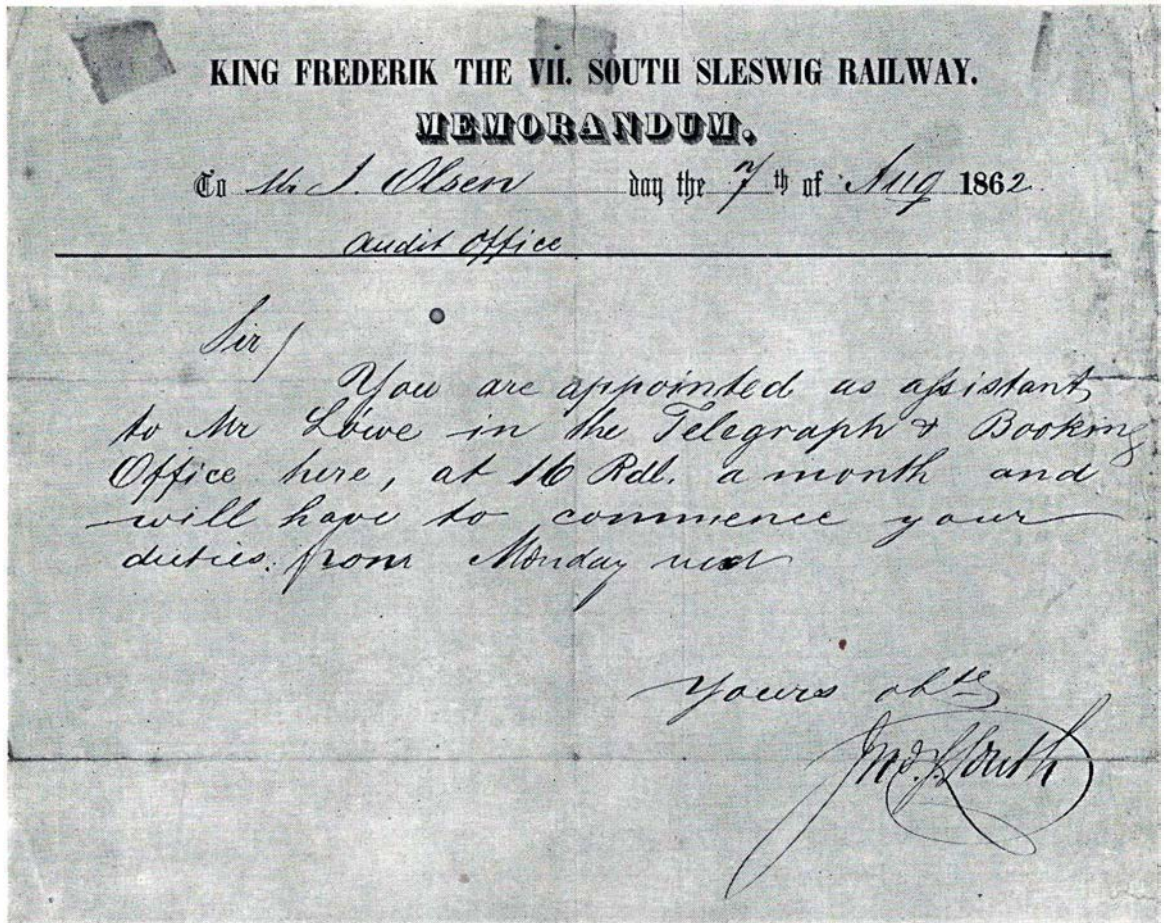 KING FREDERIK THE VII. SOUTH SLESWIG RAILWAY.
MEMORANDUM.
To Mr J. Olsen day the 7 th of Aug 1862.
Audit Office
Sir/
You are appointed as assistant
to Mr Löwe in the Telegraph & Booking
Office here, at 16 Rdl. a month and
will have to commence your
duties from Monday next
Yours obtly
Jno. J. South